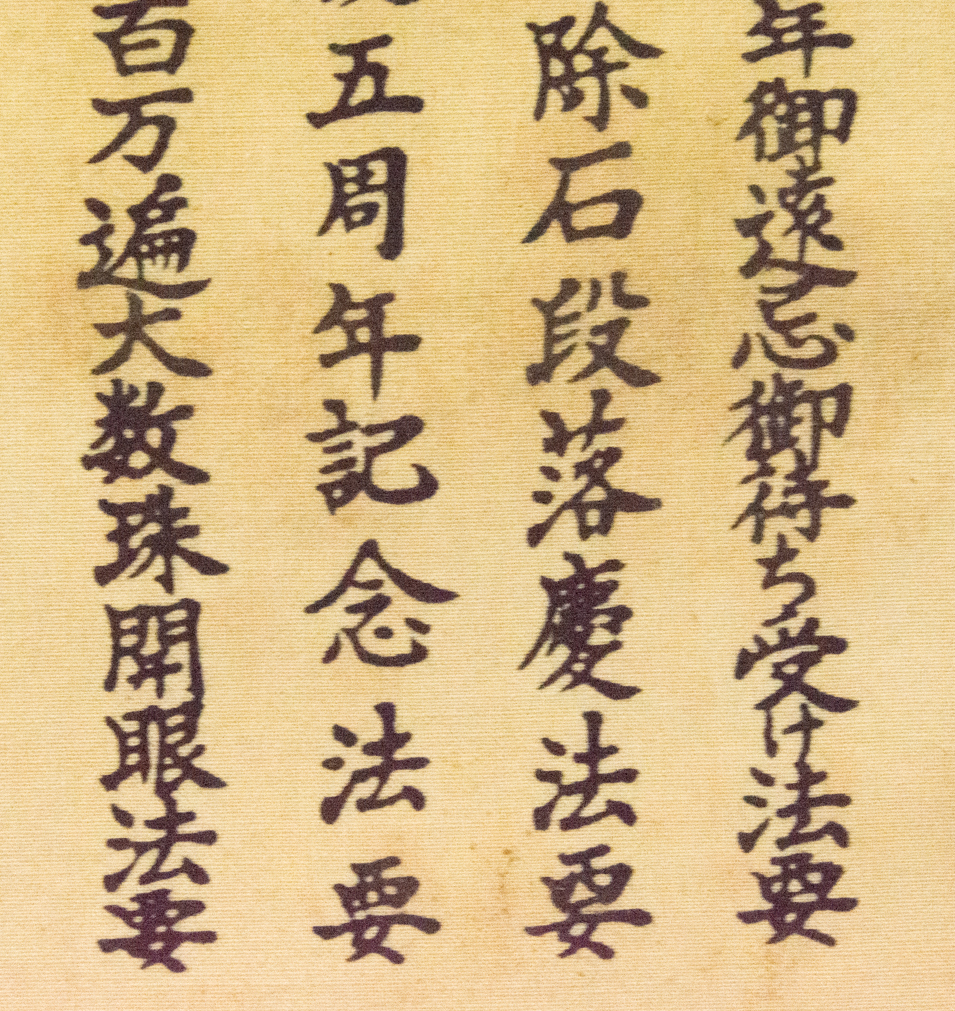 年御遠忌御待ち受け法要
除石段落慶法要
五周年記念法要
百万遍大数珠開眼法要